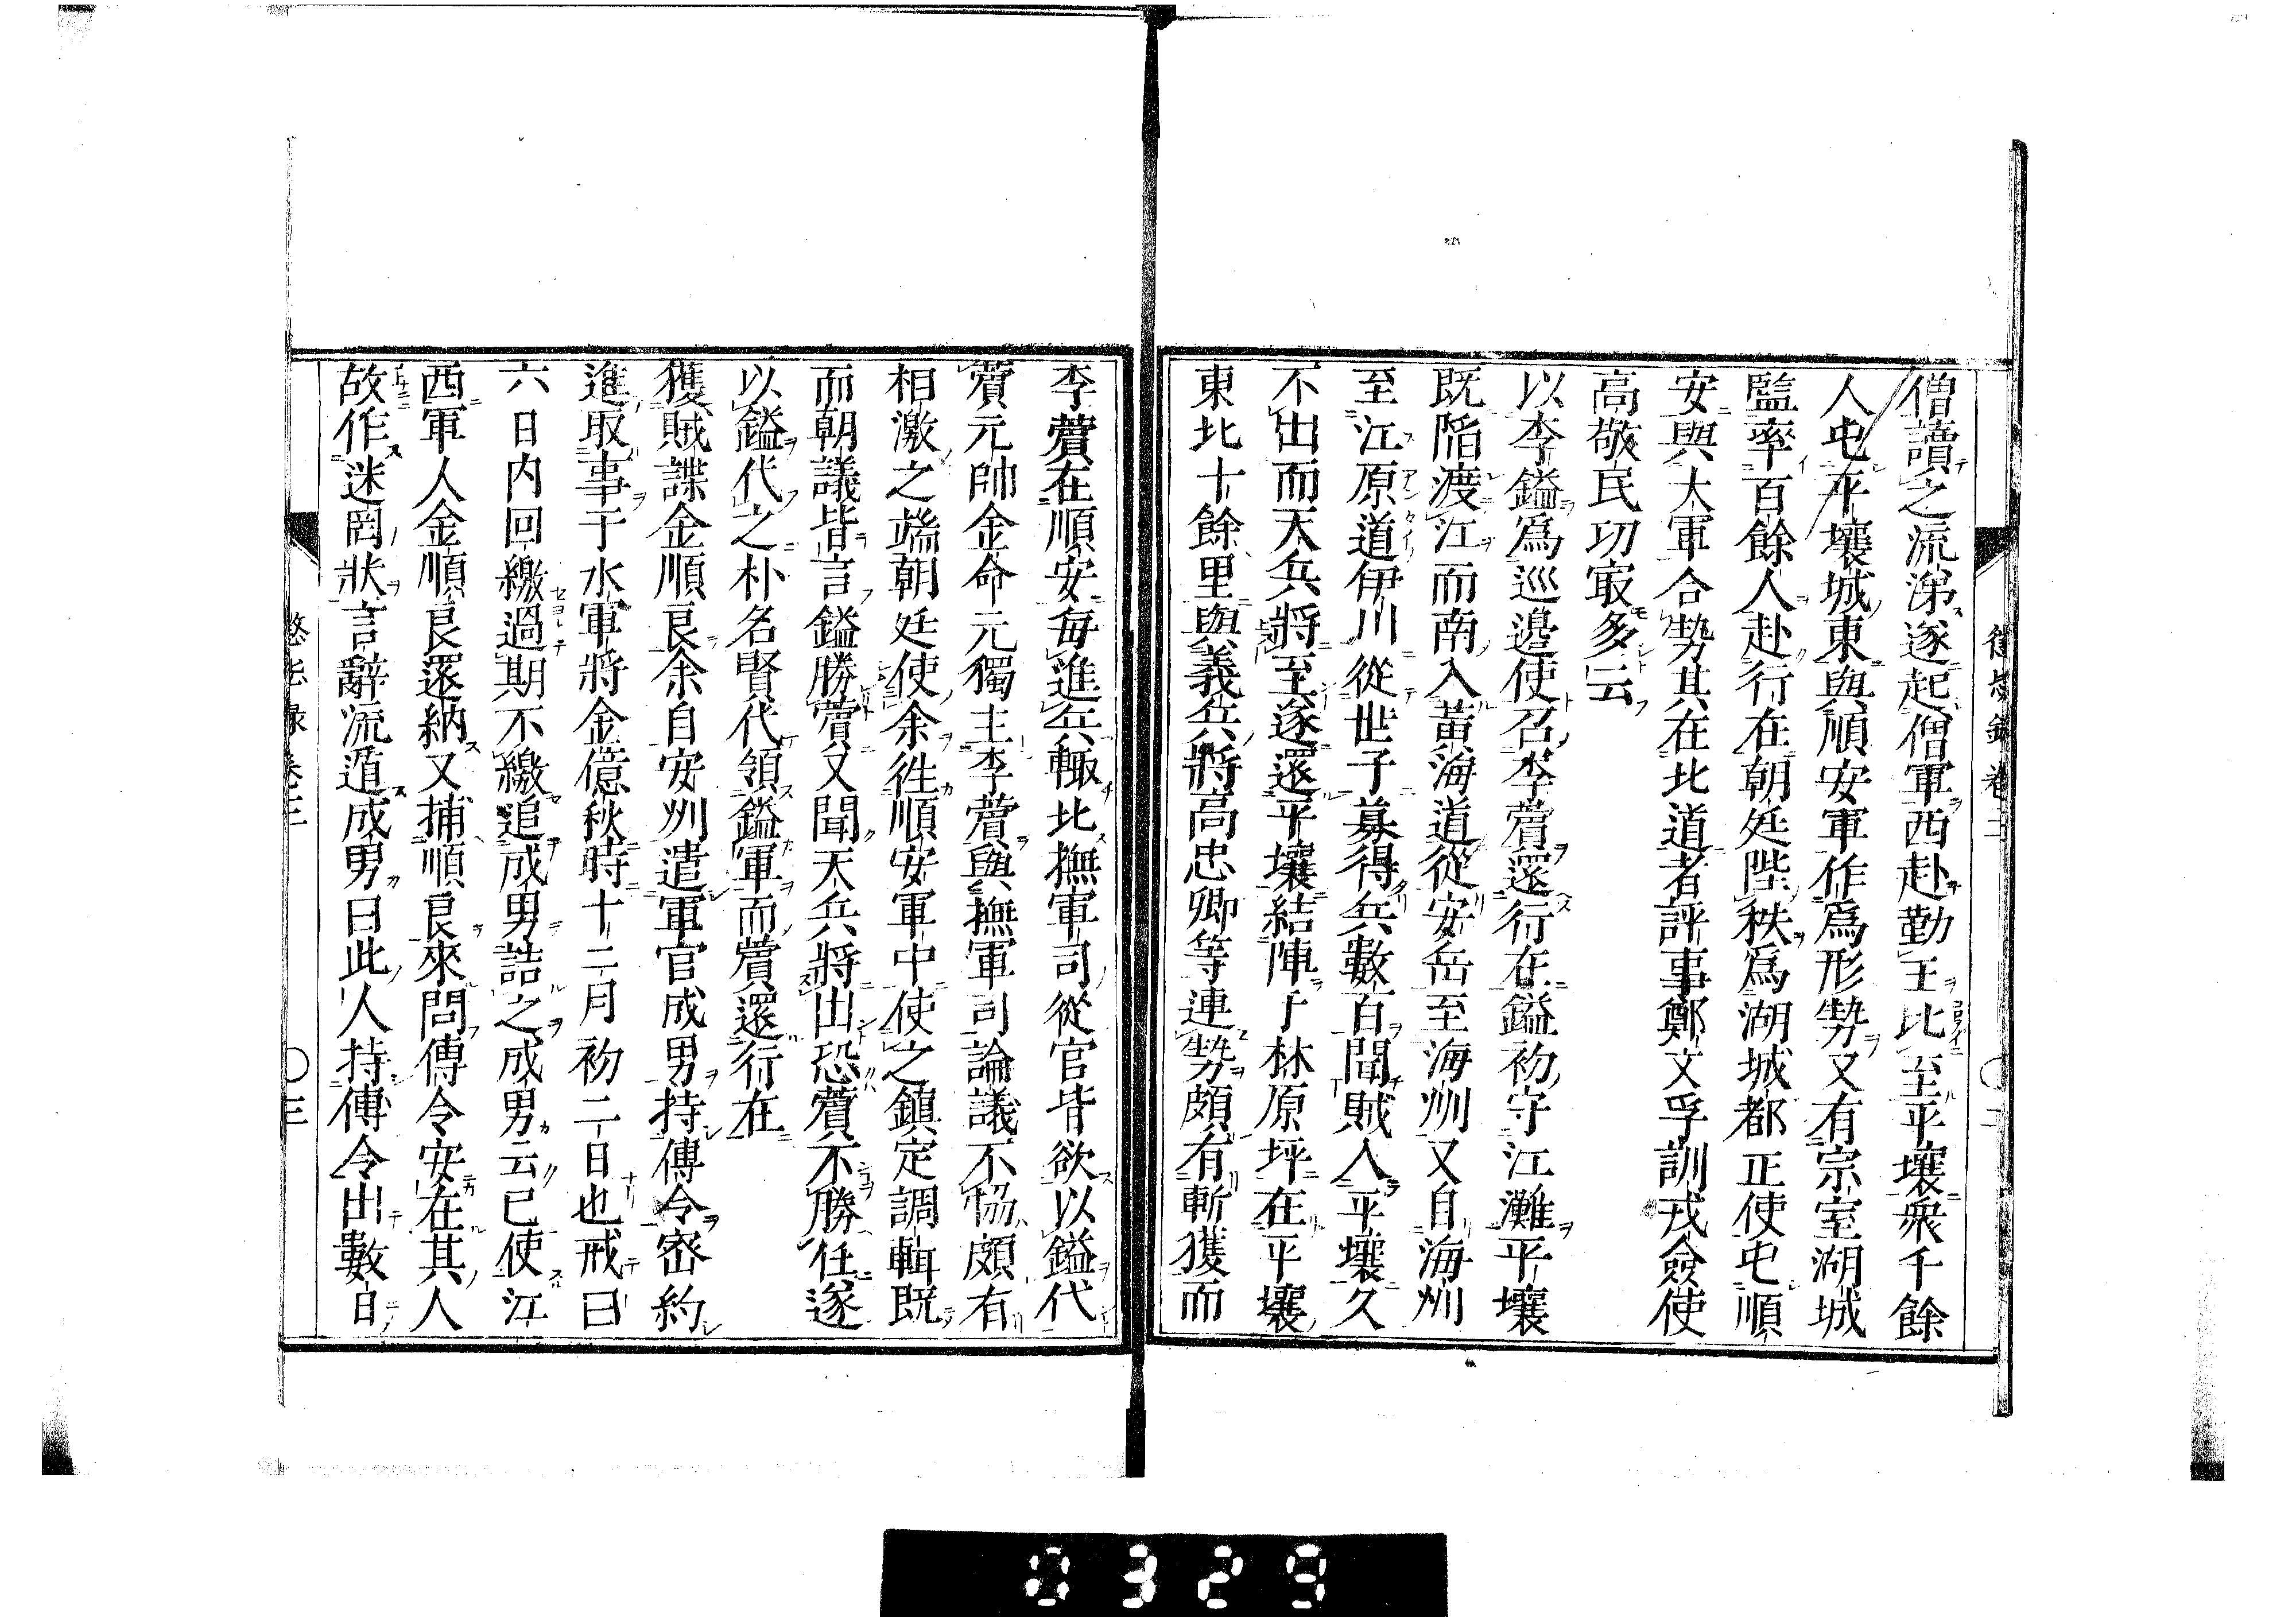 僧讀之流涕遂起僧軍西赴勤王比至平壤衆千餘
人屯平壤城東與順安軍作爲形勢又有宗室湖城
監率百餘人赴行在朝廷陞秩爲湖城都正使屯順
安與大軍合勢其在北道者評事鄭文孚訓戎僉使
高敬民功㝡多云
以李鎰爲巡邊使召李薲還行在鎰初守江灘平壤
既陷渡江而南入黃海道從安岳至海州又自海州
至江原道伊川從世子募得兵數百聞賊入平壤久
不出而天兵將至遂還平壤結陣于林原坪在平壤
東北十餘里與義兵將高忠卿等連勢頗有斬獲而
李薲在順安每進兵輙北撫軍司從官皆欲以鎰代
薲元帥金命元獨主李薲與撫軍司論議不恊頗有
相激之端朝廷使余徃順安軍中使之鎮定調輯既
而朝議皆言鎰勝薲又聞天兵將出恐薲不勝任遂
以鎰代之朴名賢代領鎰軍而薲還行在
獲賊諜金順良余自安州遣軍官成男持傳令密約
進取事于水軍將金億秋時十二月初二日也戒曰
六日内回繳過期不繳追成男詰之成男云已使江
西軍人金順良還納又捕順良來問傳令安在其人
故作迷罔狀言辭流遁成男曰此人持傳令出數日
懲毖録卷三
〇三
〇二
0329